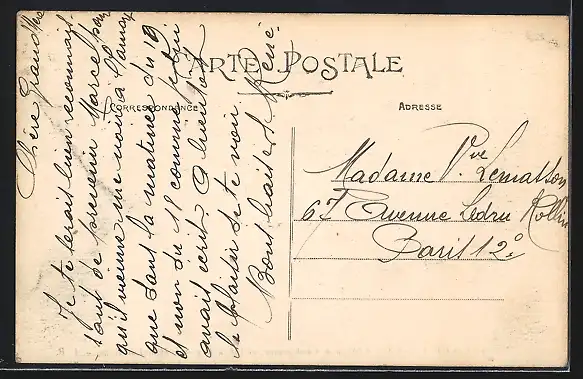 CARTE POSTALE
CORRESPONDANCE
ADRESSE
Chère Grand'Mère
Je te serais bien reconnais-
sant de prévenir Marcel pour
qu'il vienne me voir à
que dans la matinée du 19
et non du 18 comme je lui
avais écrit. A bientôt
le plaisir de te voir.
Bons baisers René
Madame Vve Lemasson
67 Avenue Ledru Rollin
Paris 12e